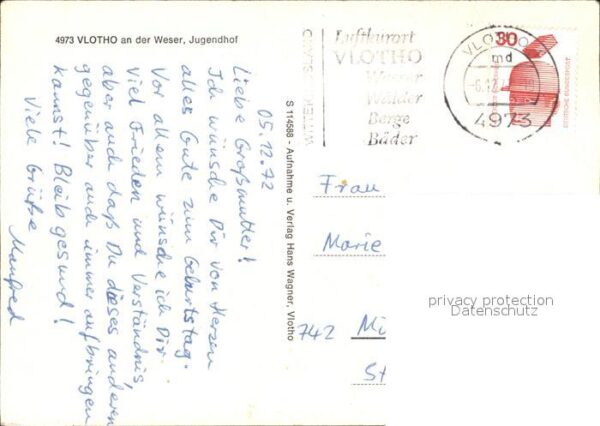 4973 VLOTHO an der Weser, Jugendhof
05.12.72
Liebe Großmutter!
Ich wünsche Dir von Herzen
alles Gute zum Geburtstag.
Vor allem wünsche ich Dir
viel Frieden und Verständnis,
aber auch daß Du dieses anderen
gegenüber auch immer aufbringen
kannst! Bleib gesund!
Viele Grüße
Manfred
S 114588 - Aufnahme u. Verlag Hans Wagner, Vlotho
Luftkurort
VLOTHO
Wasser
Wälder
Berge
Bäder
VLOTHO
md
4973
30
DEUTSCHE BUNDESPOST
Frau
Marie
742 Mü
St
privacy protection
Datenschutz